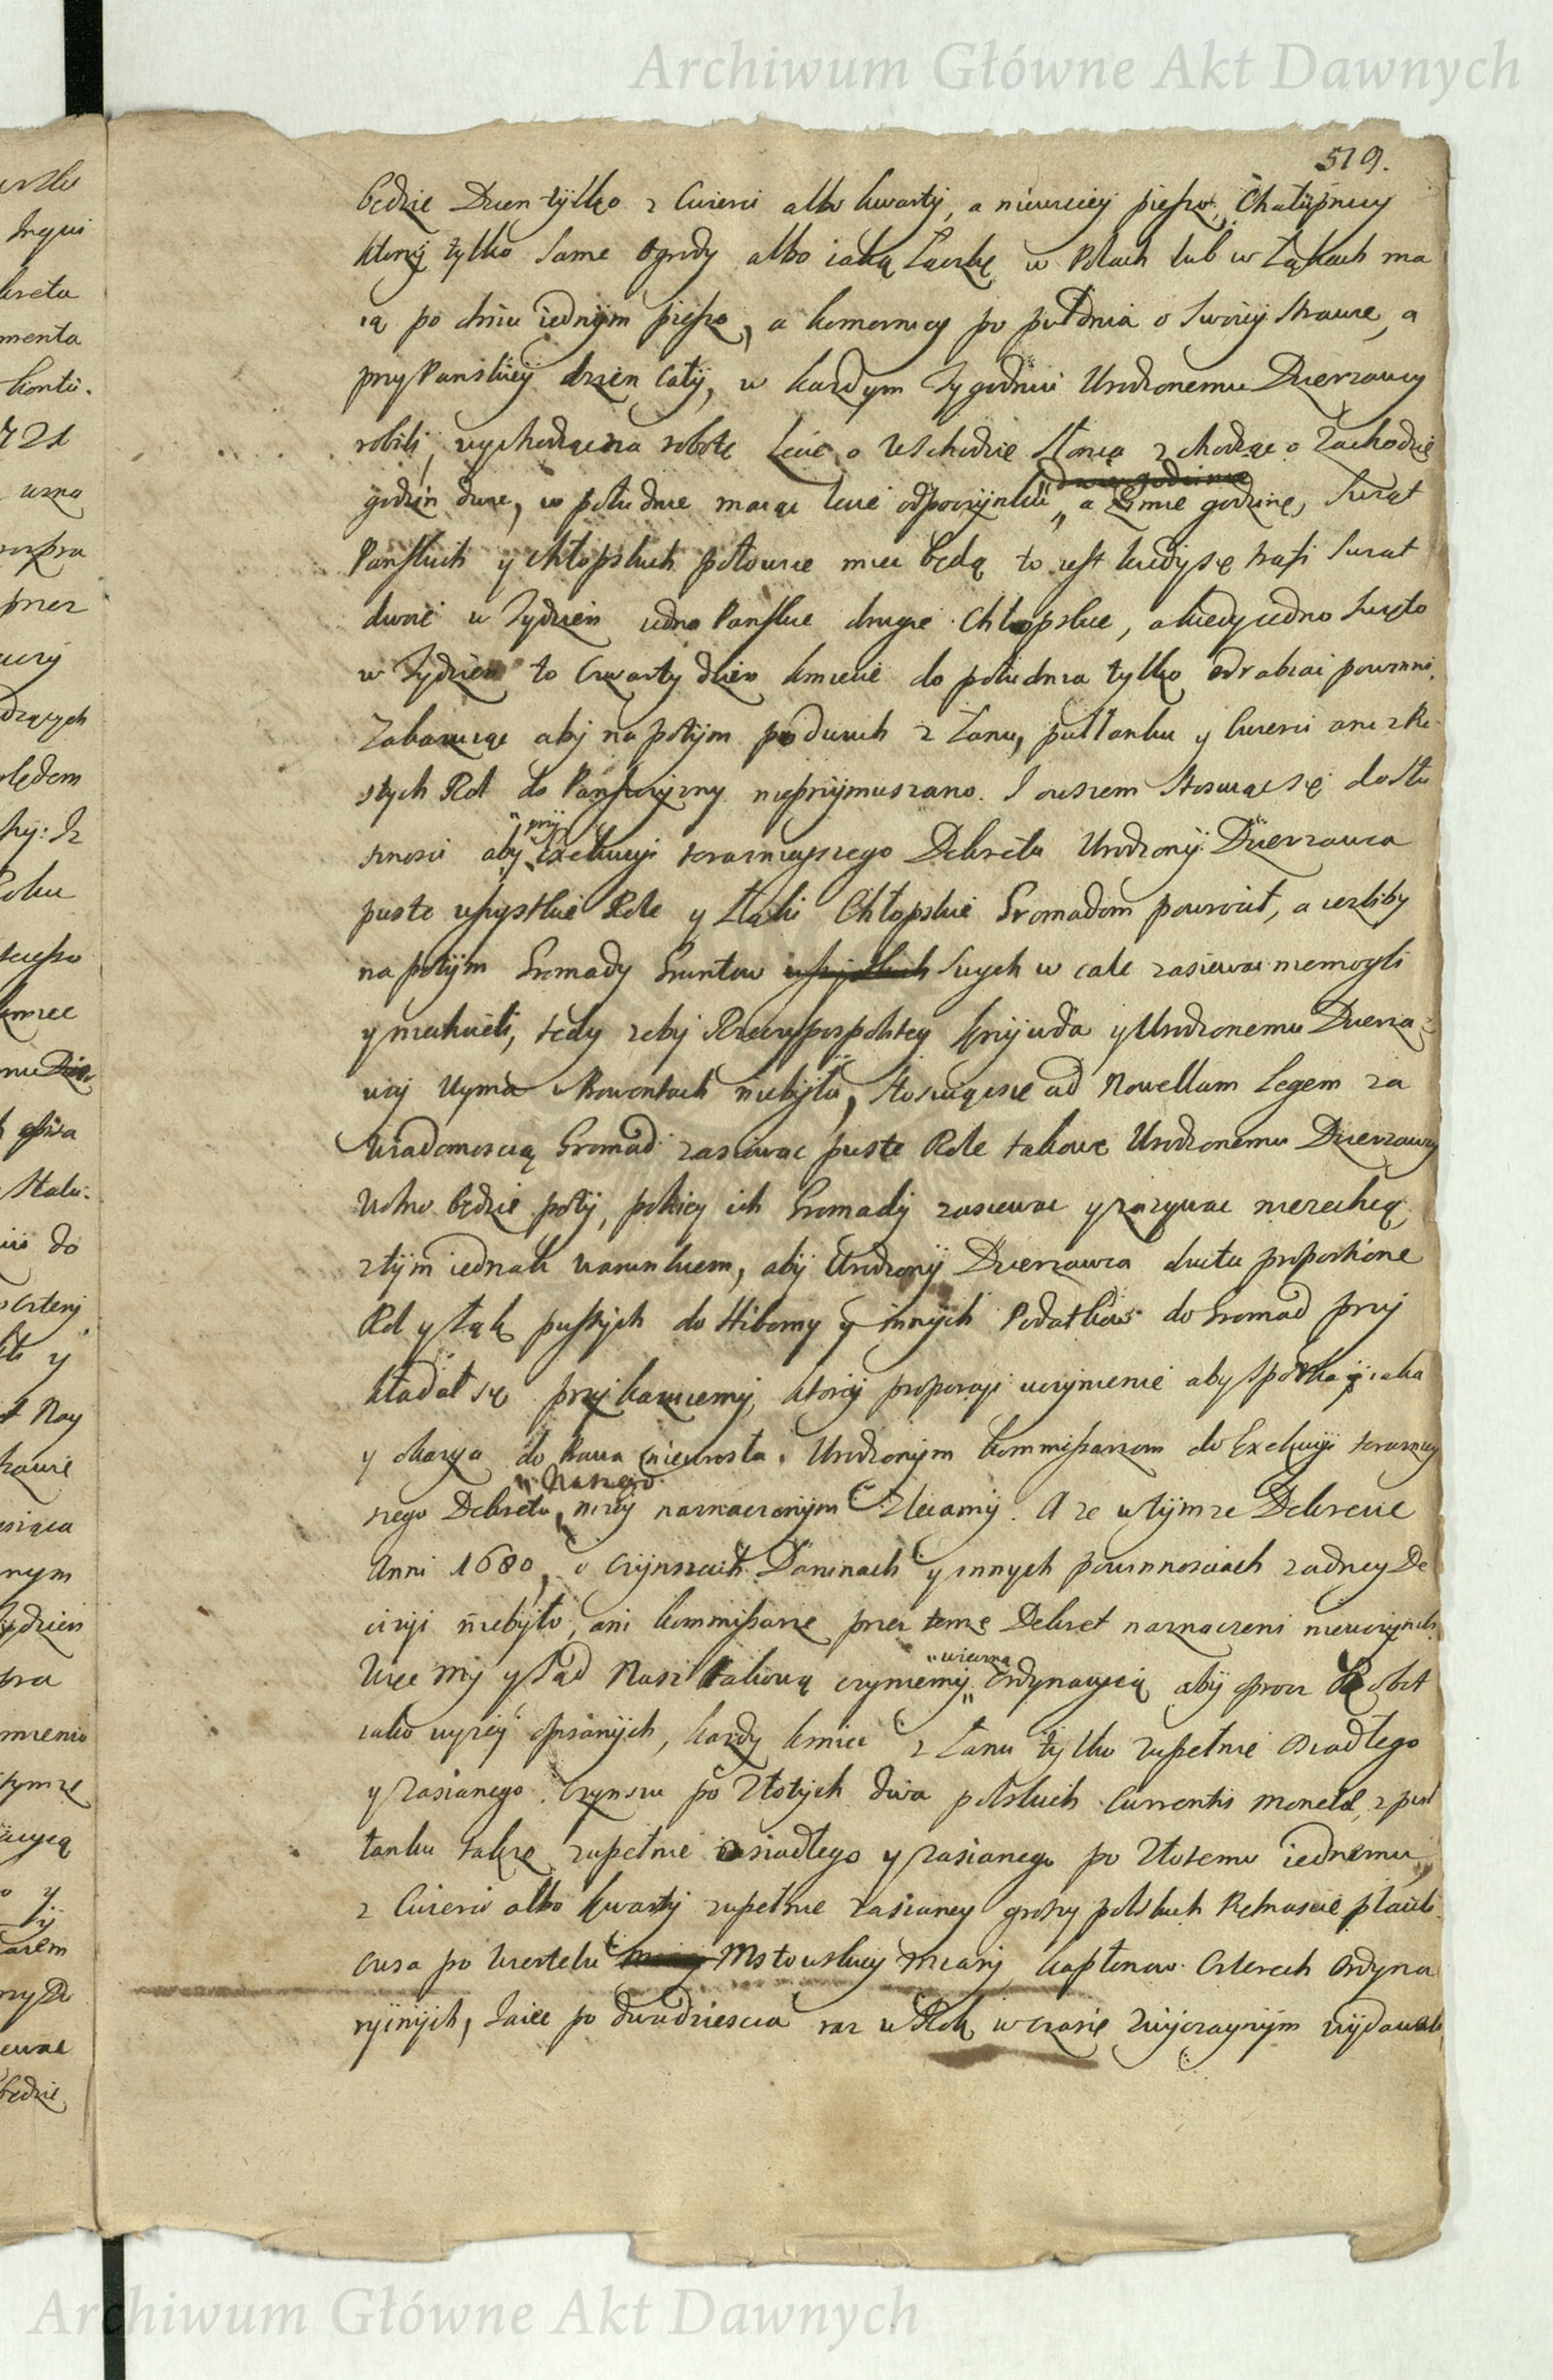 Archiwum Główne Akt Dawnych
519.
będzie Dzien tylko z Cwierci albo kwarty, a niewiecey pieszo, Chałupnicy
ktorzy tylko same Ogrody albo iaką Łączkę w Polach lub w Łąkach ma
ią po dniu iednym pieszo, a komornicy po puł dnia o swoiey strawie, a
przy Panskiey dzien cały, w kazdym Tygodniu Urodzonemu Dzierzawcy
robili, wychodząc na robotę Lecie o Wschodzie Słonca zchodząc o Zachodzie
dwie godzinie
godzin dwie, w południe maiąc lecie odpoczynku a Zimie godzinę, Swiąt
Panskich y chłopskich połowice miec będą to iest kiedy się trafi Swiat
dwoie w Tydzien iedno Panskie drugie Chłopskie, a kiedy iedno Swięto
w Tydzien to Czwarty dzien kmiecie do południa tylko odrabiac powinni.
Zabawiąc aby na potym po dwuch z Łanu, pułłanku y Cwierci ani z Pu
stych Rol do Panszczyzny nieprzymuszano. I owszem stosuiąc się do Słu
przy
sznosci aby Exekucyi teraznieyszego Dekretu Urodzony Dzierzawca
puste wszystkie Role y Łąki Chłopskie Gromadom powrocił, a iezliby
na potym Gromady Gruntow wszystkich swych w cale zasiewac niemogli
y niechcieli, tedy zeby Rzeczypospolitey krzywda y Urodzonemu Dzierza
wcy Uyma w Prowentach niebyła, stosuiąc się ad Novellam Legem za
wiadomoscią Gromad zasiewac puste Role takowe Urodzonemu Dzierzawcy
Wolno będzie poty, pokiey ich Gromady zasiewac y zazywac niezechcą
ztym iednak warunkiem, aby Urodzony Dzierzawca iuxta proportione
Rol y Łąk pustych do Hiberny y innych Podatkow do Gromad przy
kładał się przykazuiemy, ktorey proporcyi uczynienie aby Sporka iaka
y okazya do Prawa nieurosła. Urodzonym kommissarzom do Exekucyi terazniey
Naszego
szego Dekretu, nizey naznaczonym Zlecamy. A ze w tymze Dekrecie
Anni 1680, o Czynszach Daninach y innych powinnosciach zadney De
cizyi niebyło, ani kommissarze przez tenze Dekret naznaczeni nieuczynili.
wieczną
Więc My y Sąd Nasz takową czyniemy Ordynacyią aby oprocz Robot
iako wyzey opisanych, kazdy kmiec z Łanu tylko zupełnie osiadłego
y zasianego Czynszu po Złotych dwa polskich Currentis Moneta, z puł
łanku takze zupełnie osiadłego y zasianego po Złotemu iednemu,
z Cwierci albo kwarty zupełnie zasianey groszy polskich Piętnascie płacili
Owsa po Wiertelu Mstowskiey Miary, kapłonow Czterech Ordyna
ryinych, Jaiec po dwadziescia raz w Rok w czasie zwyczaynym wydawali
Archiwum Główne Akt Dawnych